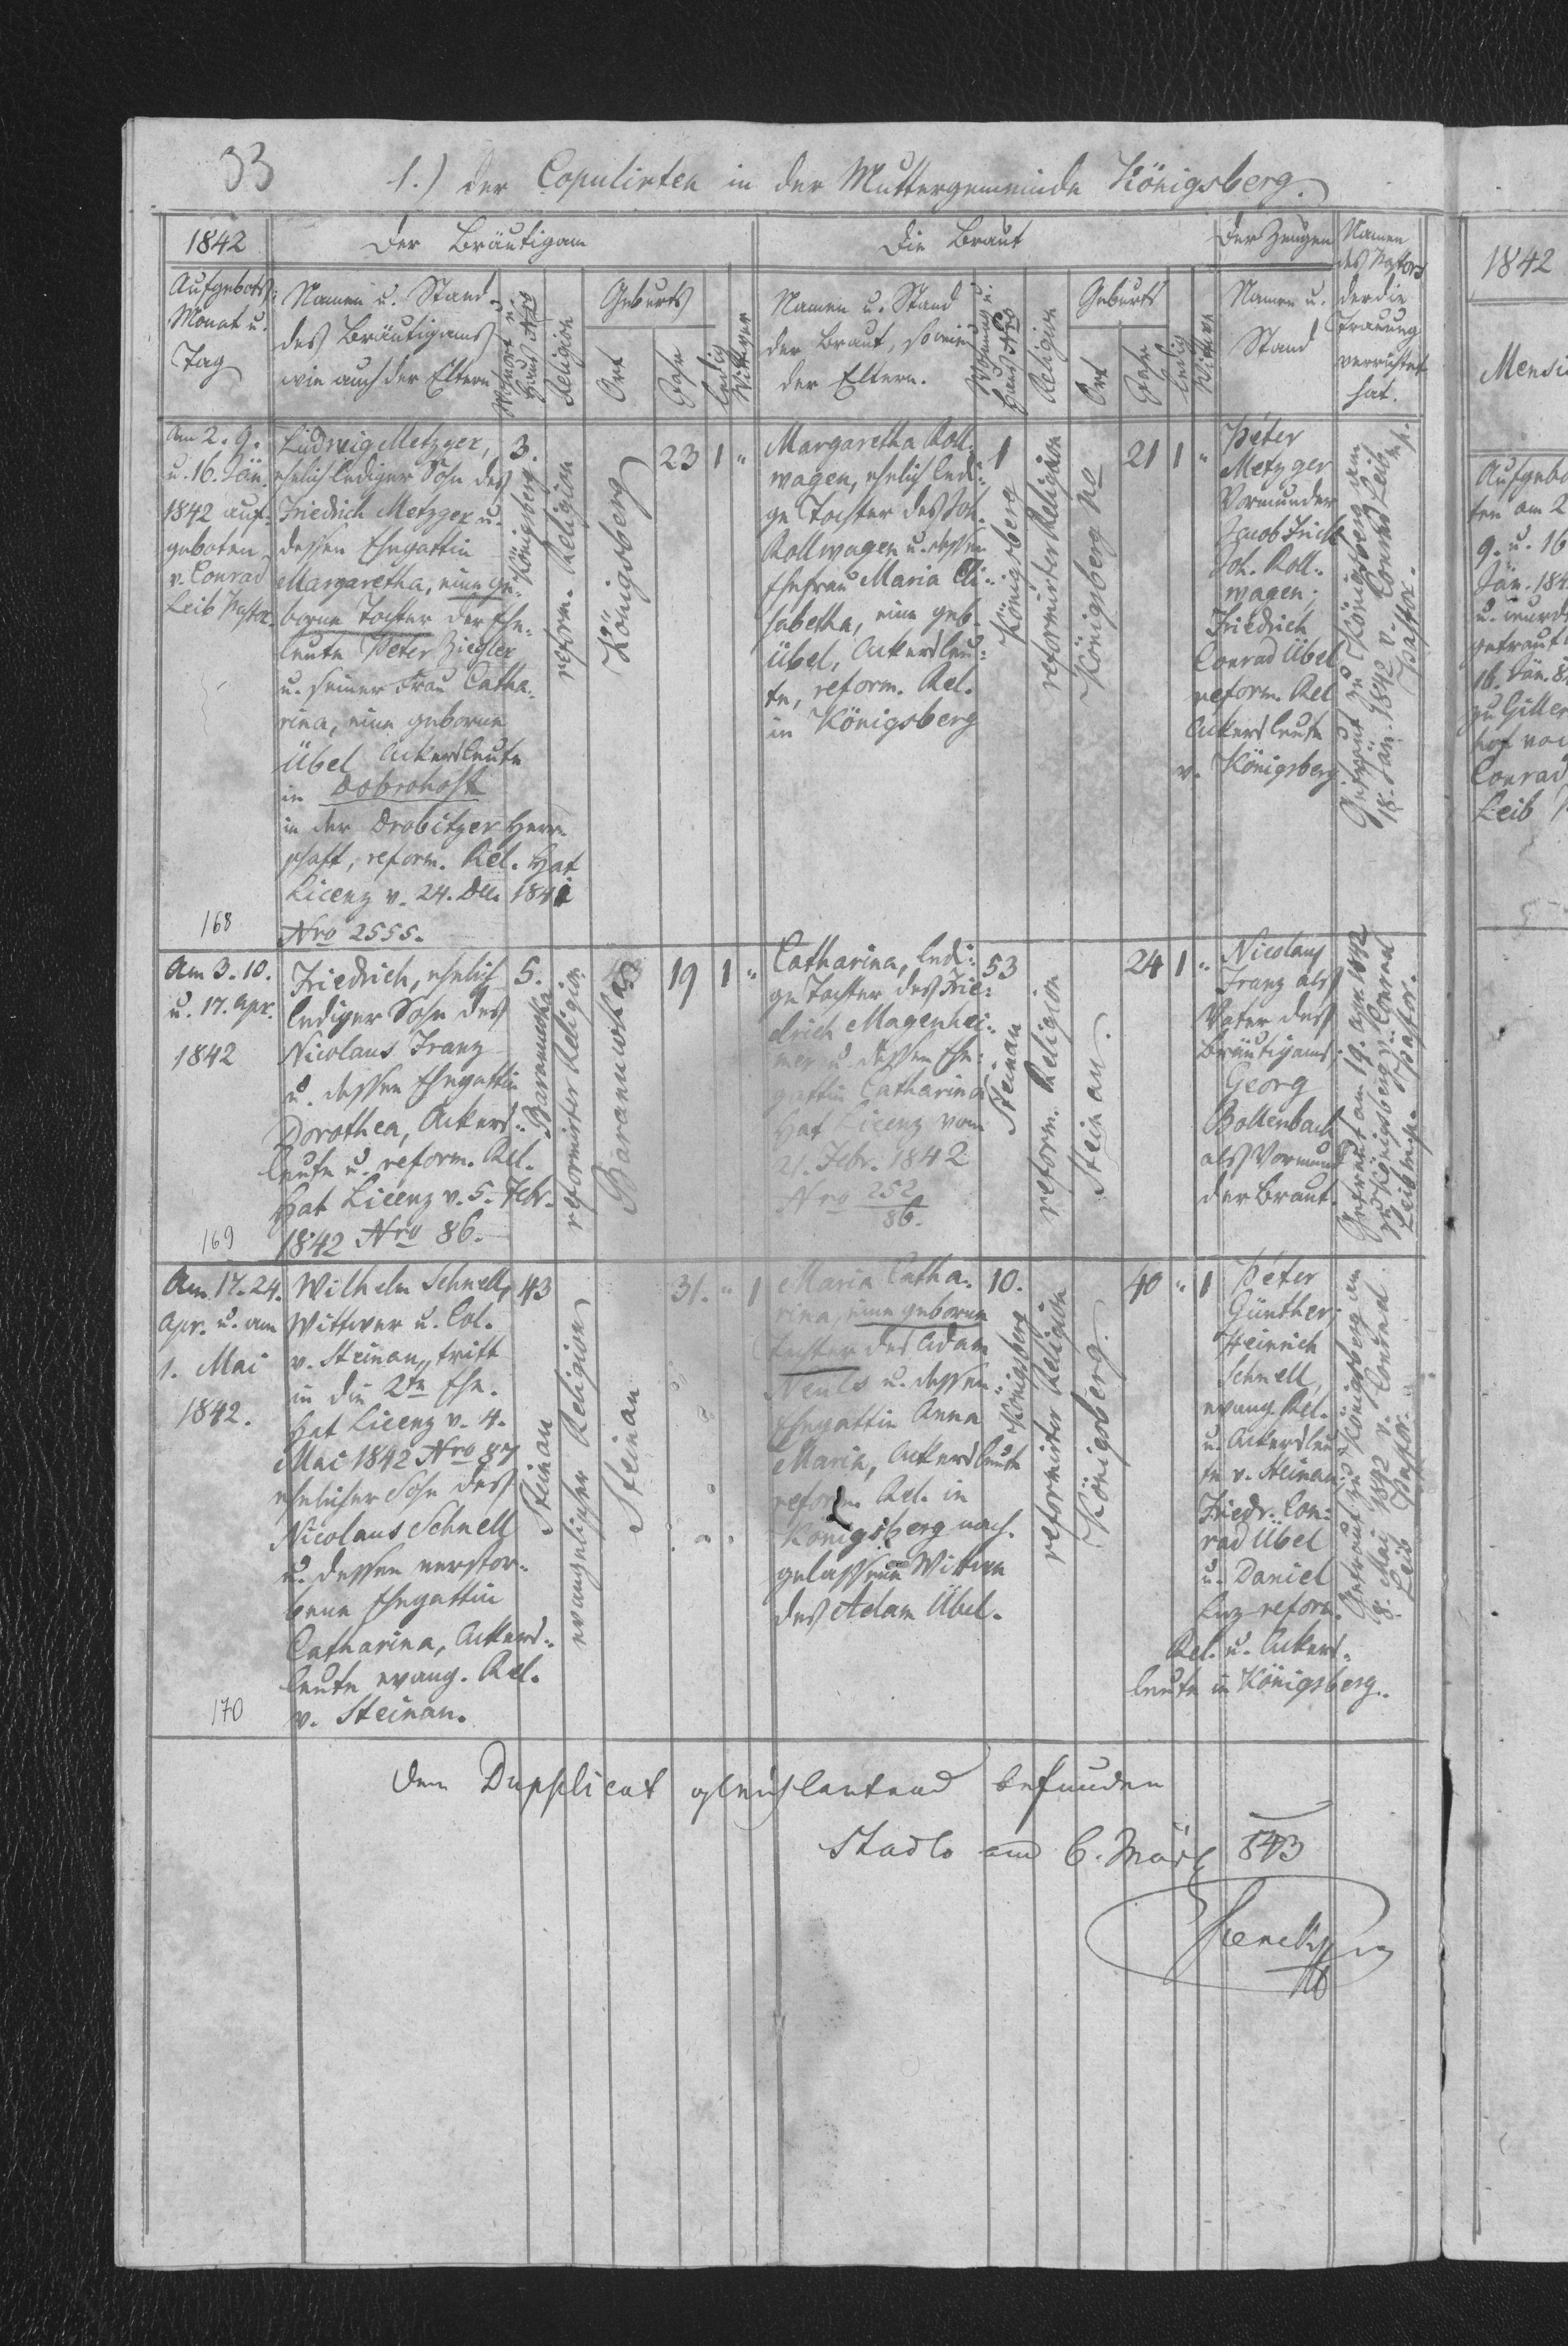 33
1.) der Copulirten in der Muttergemeinde Königsberg.
1842
Der Bräutigam
Die Braut
Der Zeugen
Namen
des Pastors
der die
Trauung
verrichtet
hat.
Aufgebots
Monat u.
Tag
Namen u. Stand
des Bräutigams
wie auch der Eltern
Wohnort u.
Haus Nro
Religion
Geburts
Ort
Jahr
ledig
Wittwer
Namen u. Stand
der Braut, so wie
der Eltern.
Wohnung u.
Haus Nro
Religion
Geburts
Ort
Jahr
ledig
Wittwe
Namen u.
Stand
Am 2. 9.
u. 16. Jän.
1842 auf-
geboten
v. Conrad
Leib Pastor.
168
Ludwig Metzger,
ehelich lediger Sohn des
Friedrich Metzger u.
dessen Ehegattin
Margaretha, eine ge-
borne Tochter der Ehe-
leute Peter Ziegler
u. seiner Frau Catha-
rina, eine geborne
Übel Ackersleute
in Dobrohost
in der Drobitzer Herr-
schaft, reform. Rel. Hat
Licenz v. 24. Dec. 1841
Nro 2555.
3.
Königsberg
reform. Religion
Königsberg
23
1
"
Margaretha Roll-
wagen, ehelich ledi-
ge Tochter des Joh.
Rollwagen u. dessen
Ehefrau Maria Eli-
sabetha, eine geb.
Übel, Ackersleu-
te, reform. Rel.
in Königsberg
1
Königsberg
reformirter Religion
Königsberg No
21
1
"
Peter
Metzger
Vormunder
Jacob Frick
Joh. Roll-
wagen;
Friedrich
Conrad Übel
reform. Rel
Ackersleute
v. Königsberg
Getraut zu Königsberg am
18. Jän. 1842 v. Conrad Leib mp.
Pastor.
Am 3. 10.
u. 17. Apr.
1842
169
Friedrich, ehelich
lediger Sohn des
Nicolaus Franz
u. dessen Ehegattin
Dorothea, Ackers-
leute u. reform. Rel.
Hat Licenz v. 5. Febr.
1842 Nro 86.
5.
Baranuwka
reformirter Religion
Baranuwka
19
1
"
Catharina, ledi-
ge Tochter des Frie-
drich Magenhei-
mer u. dessen Ehe-
gattin Catharina
Hat Licenz vom
21. Febr. 1842
Nro 252
86.
53
Steinau
reform. Religion
Steinau.
24
1
"
Nicolaus
Franz als
Vater des
Bräutigams;
Georg
Bollenbach
als Vormund
der Braut.
Getraut am 19. Apr. 1842
zu Königsberg v. Conrad
Leib mp. Pastor.
Am 17. 24.
Apr. u. am
1. Mai
1842.
170
Wilhelm Schnell,
Wittwer u. Col.
v. Steinau, tritt
in die 2te Ehe.
Hat Licenz v. 4.
Mai 1842 Nro 87
ehelicher Sohn des
Nicolaus Schnell
u. dessen verstor-
bene Ehegattin
Catharina, Ackers-
leute evang. Rel.
v. Steinau.
43
Steinau
evangelischer Religion
Steinau
31.
"
1
Maria Catha-
rina, eine geborne
Tochter des Adam
Neuls u. dessen
Ehegattin Anna
Maria, Ackersleute
reform. Rel. in
Königsberg nach-
gelassene Wittwe
des Adam Übel.
10.
Königsberg
reformirter Religion
Königsberg.
40
"
1
Peter
Günther;
Heinrich
Schnell,
evang. Rel.
u. Ackersleu-
te v. Steinau;
Friedr. Con-
rad Übel
u. Daniel
Luz reform.
Rel. u. Ackers-
leute in Königsberg.
Getraut zu Königsberg am
8. Mai 1842 v. Conrad
Leib Pastor.
Dem Dupplicat gleichlautend befunden
Stadlo am 6. März 843
1842
Mensi
Aufgebo
ten am 2
9. u. 16
Jän. 184
u. wurd
getraut
16. Jän. 8
zu Giller
hof von
Conrad
Leib P